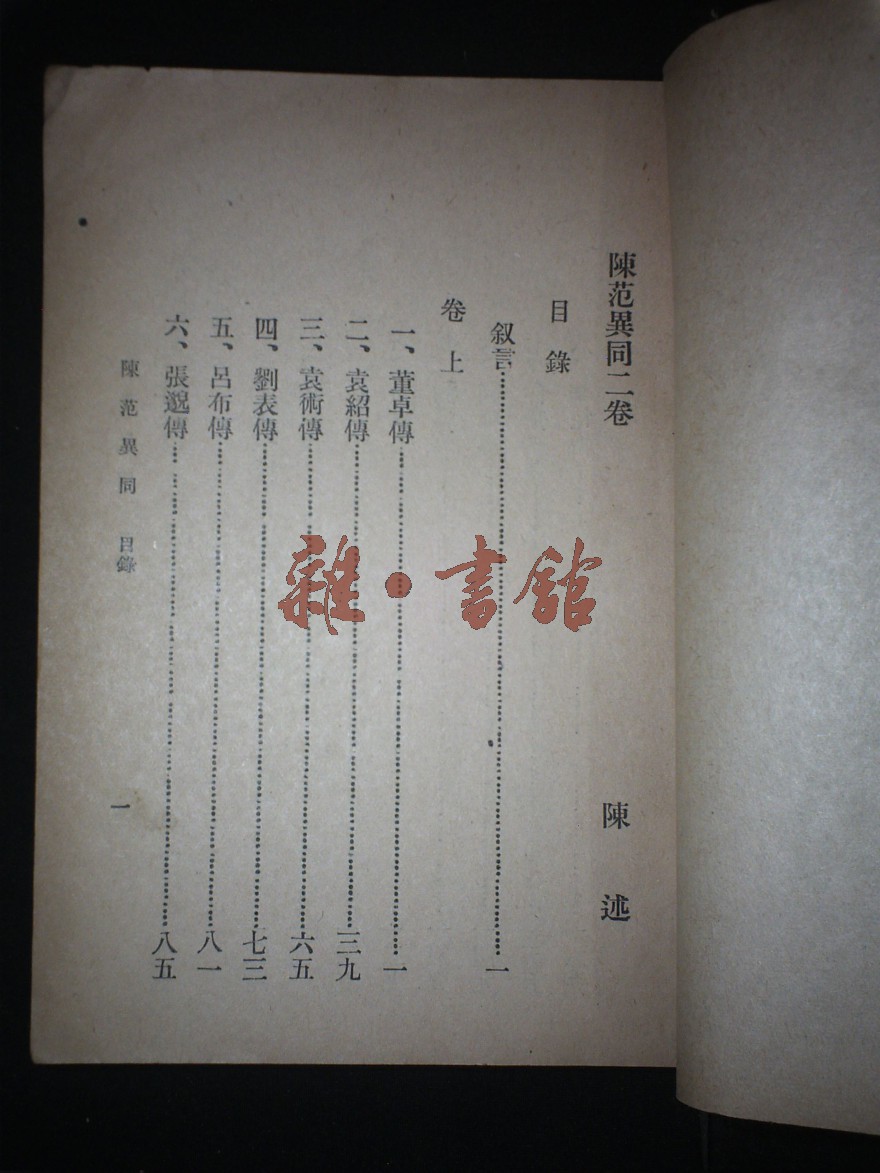 陳范異同二卷
陳述
目錄
叙言……一
卷上
一、董卓傳……一
二、袁紹傳……三九
三、袁術傳……六五
四、劉表傳……七三
五、呂布傳……八一
六、張邈傳……八五
陳范異同 目錄
一
雜·書館